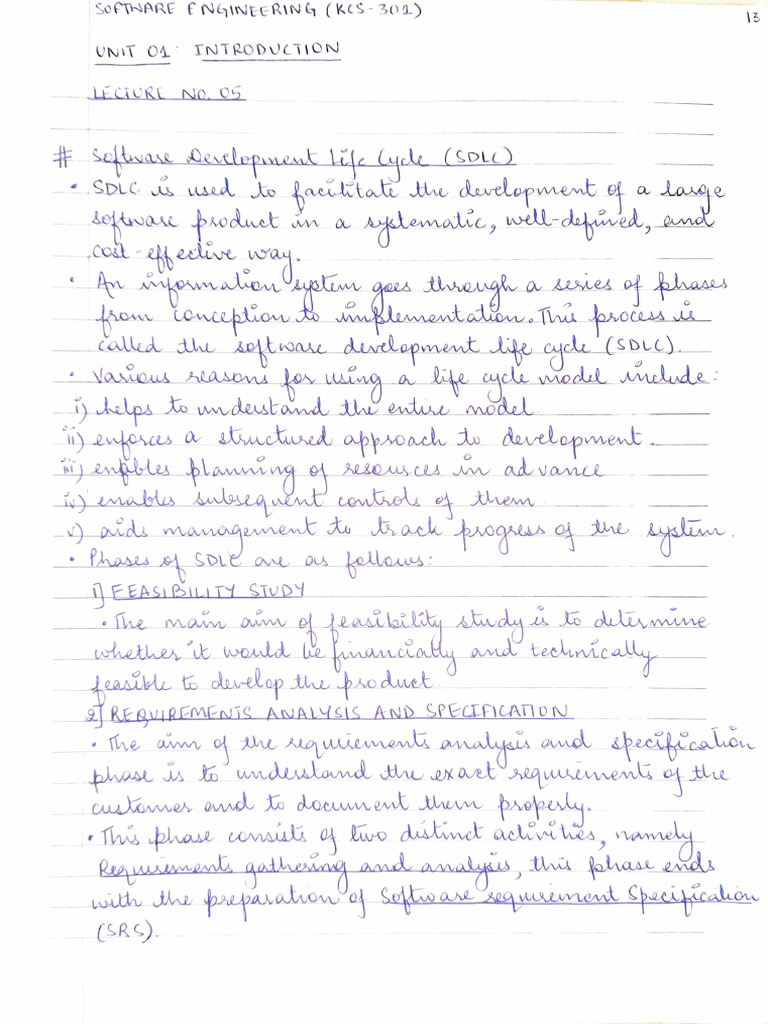 SOFTWARE ENGINEERING (KCS-301)
13
UNIT 01: INTRODUCTION
LECTURE NO. 05
# Software Development Life Cycle (SDLC)
• SDLC is used to facilitate the development of a large
software product in a systematic, well-defined, and
cost-effective way.
• An information system goes through a series of phases
from conception to implementation. This process is
called the software development life cycle (SDLC).
• Various reasons for using a life cycle model include:
i) helps to understand the entire model
ii) enforces a structured approach to development.
iii) enables planning of resources in advance
iv) enables subsequent controls of them
v) aids management to track progress of the system.
• Phases of SDLC are as follows:
1] FEASIBILITY STUDY
• The main aim of feasibility study is to determine
whether it would be financially and technically
feasible to develop the product.
2] REQUIREMENTS ANALYSIS AND SPECIFICATION
• The aim of the requirements analysis and specification
phase is to understand the exact requirements of the
customer and to document them properly.
• This phase consists of two distinct activities, namely
Requirements gathering and analysis, this phase ends
with the preparation of Software requirement Specification
(SRS).